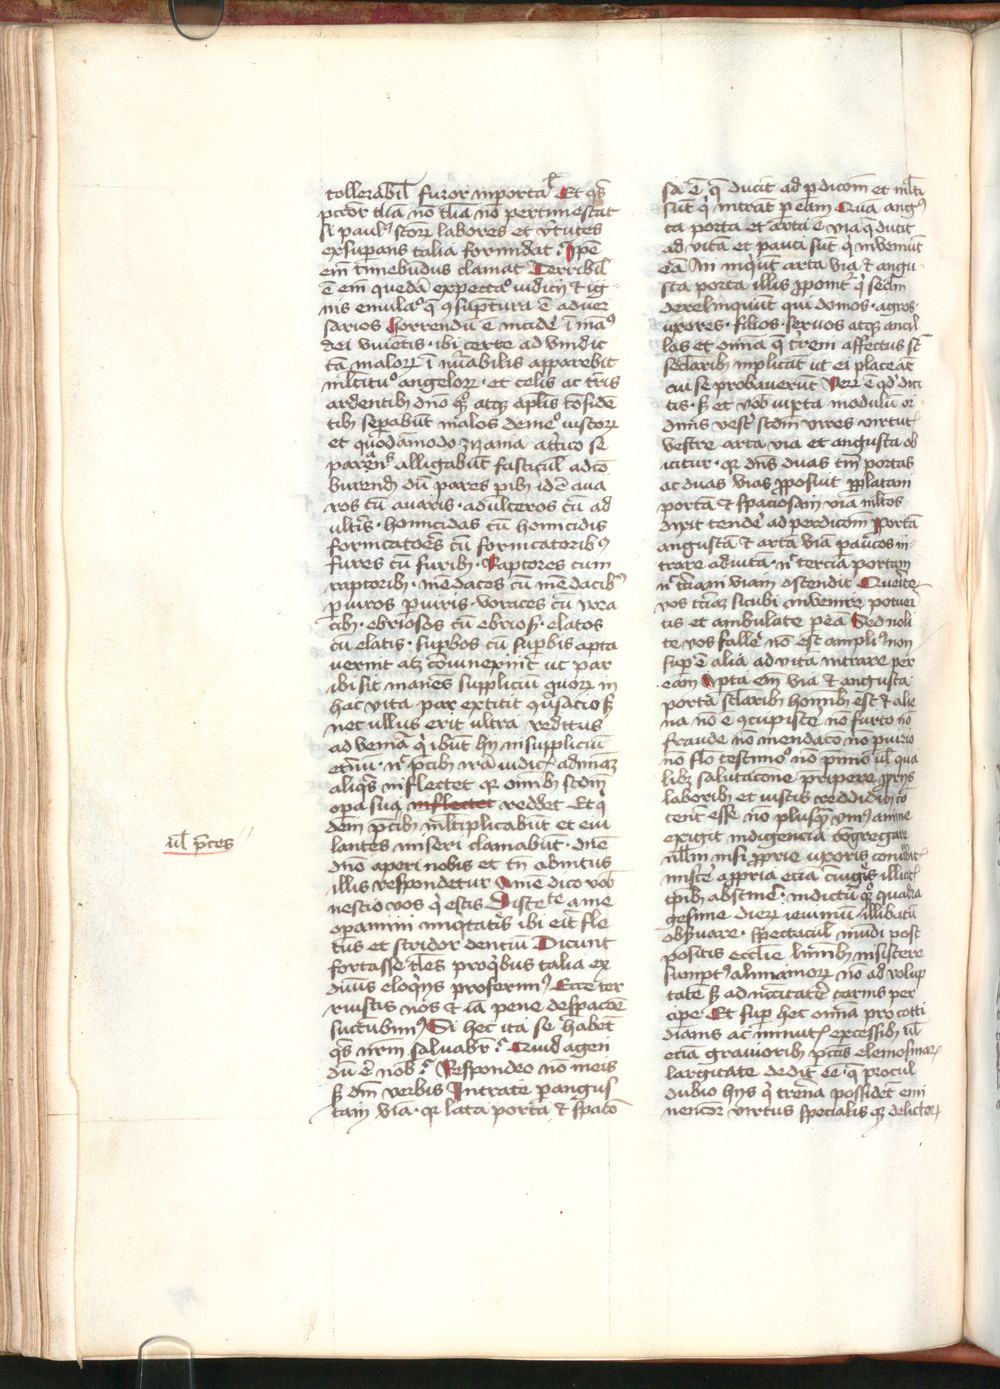 tollerabil furor inporta Et qs
pctor tlia no tlia no pertimescat
si paul9 scorum labores et v'tutes
exsuperans talia formidat Ipe
eni timebudus clamat Terribil
e em queda expecta9 iudicij et ig
nis emula9 q 9suptura e adver
sarios Horrendu e incide i ma9
dei viuetis · ibi certe ad vindic
ta malorum i mabilis apparebit
mltitu9 angelorum · et celis ac tris
ardentib dno atqz aplis
tib sepabut malos de me9 iustorum
et quodamodo zyzania attico se
parans alligabut fasticul ad co
burend du pares pib id e aua
ros cu auaris · adulteros cu ad
ultis · homicidas cu homicidis
fornicatoes cu fornicatorib9
fures cu furib · Raptores cum
raptorib · mendaces cu mendacib9
piuros piuris · voraces cu vora
cib · ebriosos cu ebrios · elatos
cu elatis · supbos cu supbis apta
uerint atz ut par
ibi sit manes suppliciu quorum in
hac vita par extitit
nec ullus erit ultra reditus
ad venia q ibut hij in suppliciu
etnu · pcib ira iudic ad mia
aliqs inflectet qr omib scdm
opa sua inflectet reddet Et q
dem pcib mltiplicabut et eiu
lantes miseri clamabut · dne
dne aperi nobis et tn abintus
illis respondetur Ame dico vob
nescio vos q estis Discete a me
operarij iniqtatis ibi eit fle
tus et stridor dentiu Dicunt
fortasse tles pro qbus talia ex
diuis eloqijs proferim9 Ecce ter
ruistis nos et ia pene despacoe
sucubim9 Si hec ita se habet
qs nrm saluabr Quid agen
du e nob Respondeo no meis
s dni verbis Intrate p angus
tam via · qr lata porta et spaco
ul pces
sa e q ducit ad pdicoem et mlti
sut q intrat p eam Qua ang9
ta porta et arta e via q ducit
ad vita et pauci sut q inveniut
ea An inqut arta via et angu
sta porta illis ppoit q seclm
derelinquunt qui domos · agros ·
uxores · filios · seruos atqz ancil
las et omia q trem affectus st
seclarib implicat ut ei placeat
cui se probauerut Veru e qd dici
tis · s et vob iuxta modulu or
dinis vest scdm vires virtut
vestre arta via et angusta ob
icitur · qr dns duas tm portas
ac duas vias pposuit p platam
porta et spaciosam via mltos
dixit tende ad perdicom Porta
angusta et arta via paucos in
trare ad uita · n tercia portam
n tciam viam ostendit Querite
vos tciaz sicubi invenire potuei
tis et ambulate p ea Sed noli
te vos falle no est ampli9 non
sup e alia ad vita intrare per
eam Apta em via et angusta
porta sclarib homib est et alie
na no e 9cupiste no furto no
fraude no mendaco no piurio
no flo testimo9 no pimio ul qua
libz salutacone pripere pprijs
laborib et iustis reddidib co
tent esse no plusqz vni9 anime
exigit indigencia congregare
nllm nisi pprie uxoris
miste a ppria etia ciuigis illict
tpib abstine · indictu quadra
gesime dierum ieiuniu illibatu
obsuare · spectacul mudi post
positis ecclie limib insistere
sumpt9 alimentorum no ad volup
tate s ad necitate carnis per
cipe Et sup hec omia pro cotti
dianis ac minut excessib ul
etia grauiorib pctis elemosinarum
largitate dedit ee · q procul
dubio hijs q trena possidet emi
nencior virtus specialis qz delictorum